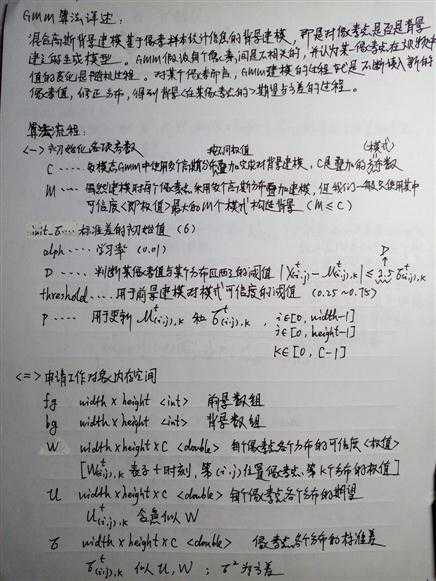 GMM算法详述：
混合高斯背景建模基于像素样本统计信息的背景建模，即是对像素点是否是背景
建立的生成模型。GMM假设每个像素间是不相关的，并认为某一像素点在视频中
值的变化是随机过程。对某个像素而言，GMM建模的过程就是不断读入新的
像素值，修正分布，得到背景<在某像素的>期望与方差的过程。
算法流程：
<一>初始化各项参数
C ···· 每模态GMM中使用多个高斯分布叠加完成对背景建模，C是叠加的分布数
M ···· 虽然建模对每个像素点采用多个高斯分布叠加建模，但我们一般只使用其中
可信度<即权值>最大的M个'模式'构造背景 (M ≤ C)
init_σ ··· 标准差的初始值 (6)
alph ···· 学习率 (0.01)
D ···· 判断某像素值与某个分布匹配的阈值 |X^t_(i,j) - M^t_(i,j),k| ≤ 2.5 σ^t_(i,j),k
D
threshold ···· 用于前景建模对模式可信度的阈值 (0.25~0.75)
P ···· 用于更新 M^t_(i,j),k 和 σ^t_(i,j),k , i∈[0, width-1]
j∈[0, height-1]
K∈[0, C-1]
<二>申请工作对象内存空间
fg width × height <int> 前景数组
bg width × height <int> 背景数组
W width × height × C <double> 每个像素点各个分布的可信度<权值>
[W^t_(i,j),k 表示 t 时刻，第(i,j)位置像素点、第K个分布的权值]
U width × height × C <double> 每个像素点各个分布的期望
U^t_(i,j),k 含意似 W
σ width × height × C <double> 像素点各个分布的标准差
σ^t_(i,j),k 似 U, W ; σ² 为方差